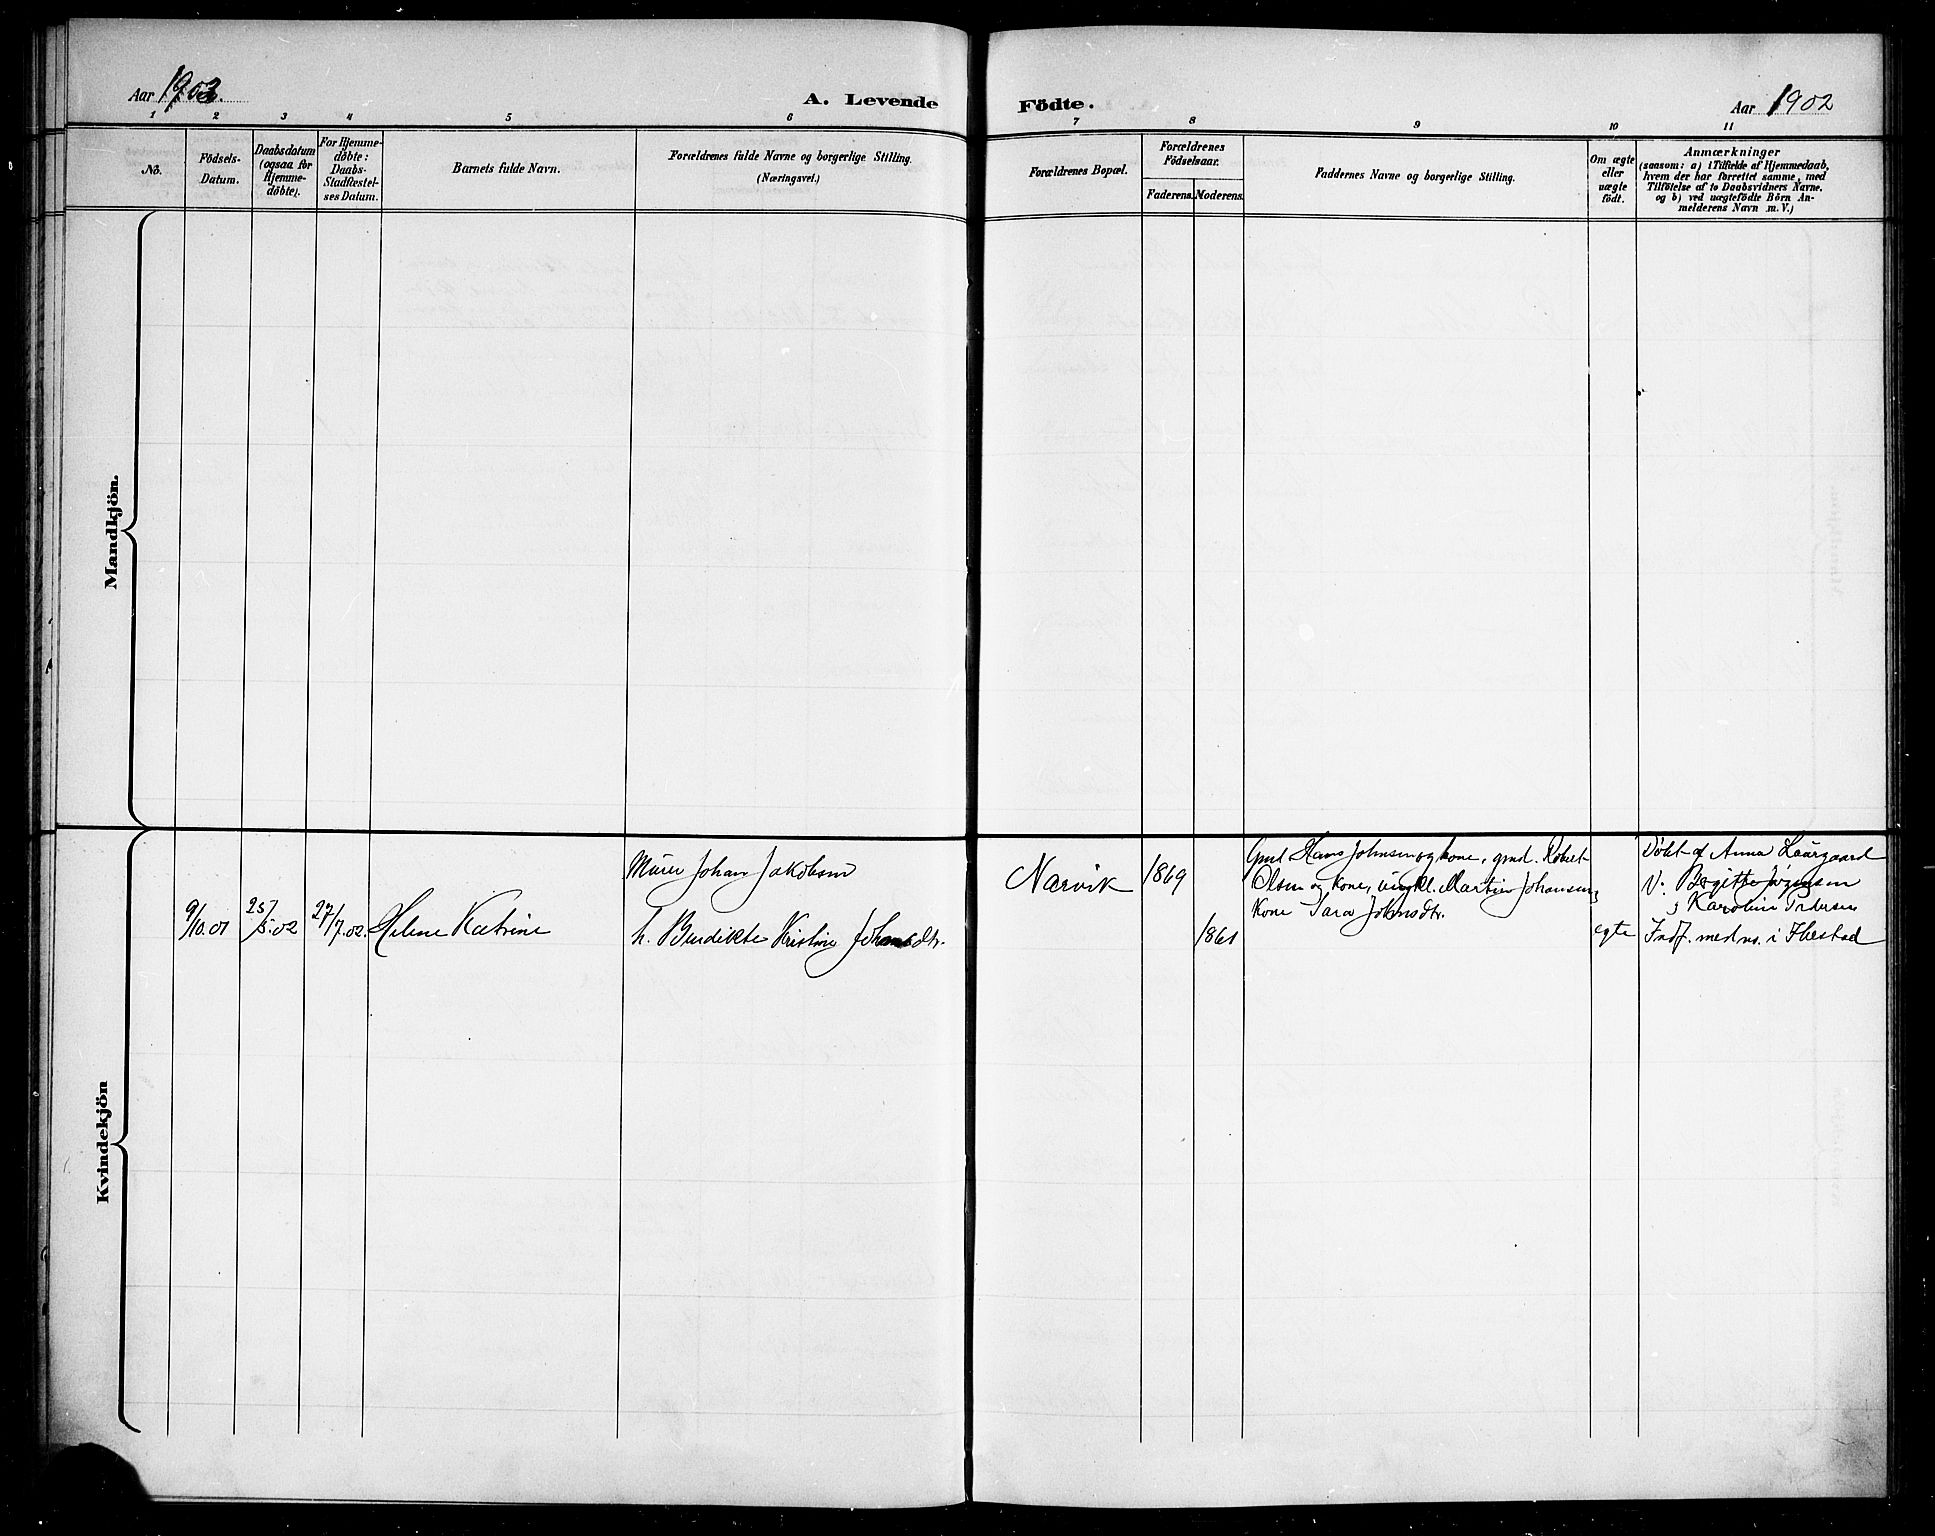 Aar 1902.
A. Levende
Födte.
Aar 1902
1 2 3 4 5 6 7 8 9 10 11
No.
Födsels-
Datum.
Daabsdatum
(ogsaa for
Hjemme-
döbte).
For Hjemme-
döbte:
Daabs-
Stadfæstel-
ses Datum.
Barnets fulde Navn.
Forældrenes fulde Navne og borgerlige Stilling.
(Næringsvei.)
Forældrenes Bopæl.
Forældrenes
Födselsaar.
Faderens.
Moderens.
Faddernes Navne og borgerlige Stilling.
Om ægte
eller
uægte
födt.
Anmærkninger
(saasom: a) i Tilfælde af Hjemmedaab,
hvem der har forrettet samme, med
Tilföielse af to Daabsvidners Navne.
og b) ved uægtefödte Börn An-
melderens Navn m. V.)
Mandkjön.
Kvindekjön
9/10.01
25/5.02
27/7.02.
Helene Katrine
Murer Johan Jakobsen
h. Berdikte Kristine Johansdtr.
Narvik
1869
1861
Gmd Hans Johnsen og kone, gmd. Robert
Olsen og kone, Martin Johansen,
kone Sara Johnsdtr.
egte
Döbt af Anna Haugaard
V: Birgitte Jörgensen
Karoline Pedersen
Indf. med no. i Ibestad